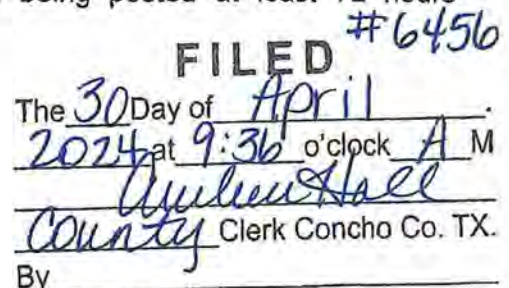 being posted at least 72 hours
#6456
FILED
The 30 Day of April.
2024 at 9:36 o'clock A M
Hall
County Clerk Concho Co. TX.
By